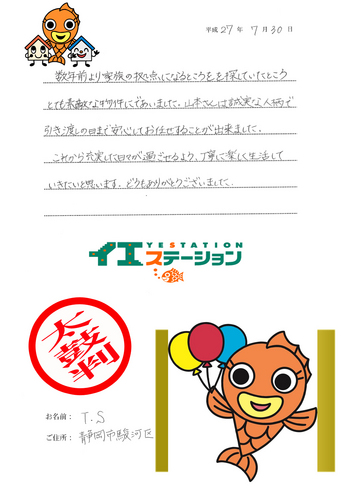 平成 27 年 7 月 30 日
数年前より家族の拠点になるところをを探していたところ
とても素敵な物件にであいました。山本さんは誠実な人柄で
引き渡しの日まで安心してお任せすることが出来ました。
これから充実した日々が過ごせるよう、丁寧に楽しく生活して
いきたいと思います。どうもありがとうございました。
YESTATION
イエステーション
太鼓判
お名前： T.S
ご住所： 静岡市駿河区